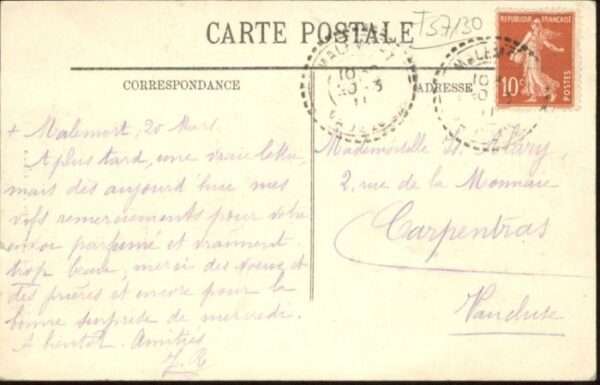 T57/30
CARTE POSTALE
CORRESPONDANCE
ADRESSE
RÉPUBLIQUE FRANÇAISE
10c
POSTES
MALEM
10
20 -3
11
+ Malemort, 20 Mars.
A plus tard, une vraie lettre,
mais dès aujourd'hui mes
vifs remerciements pour votre
envoi parfumé et vraiment
trop beau, merci des voeux et
des prières et encore pour la
bonne surprise de mercredi.
A bientôt. Amitiés
J. R
Mademoiselle
2, rue de la Monnaie
Carpentras
Vaucluse